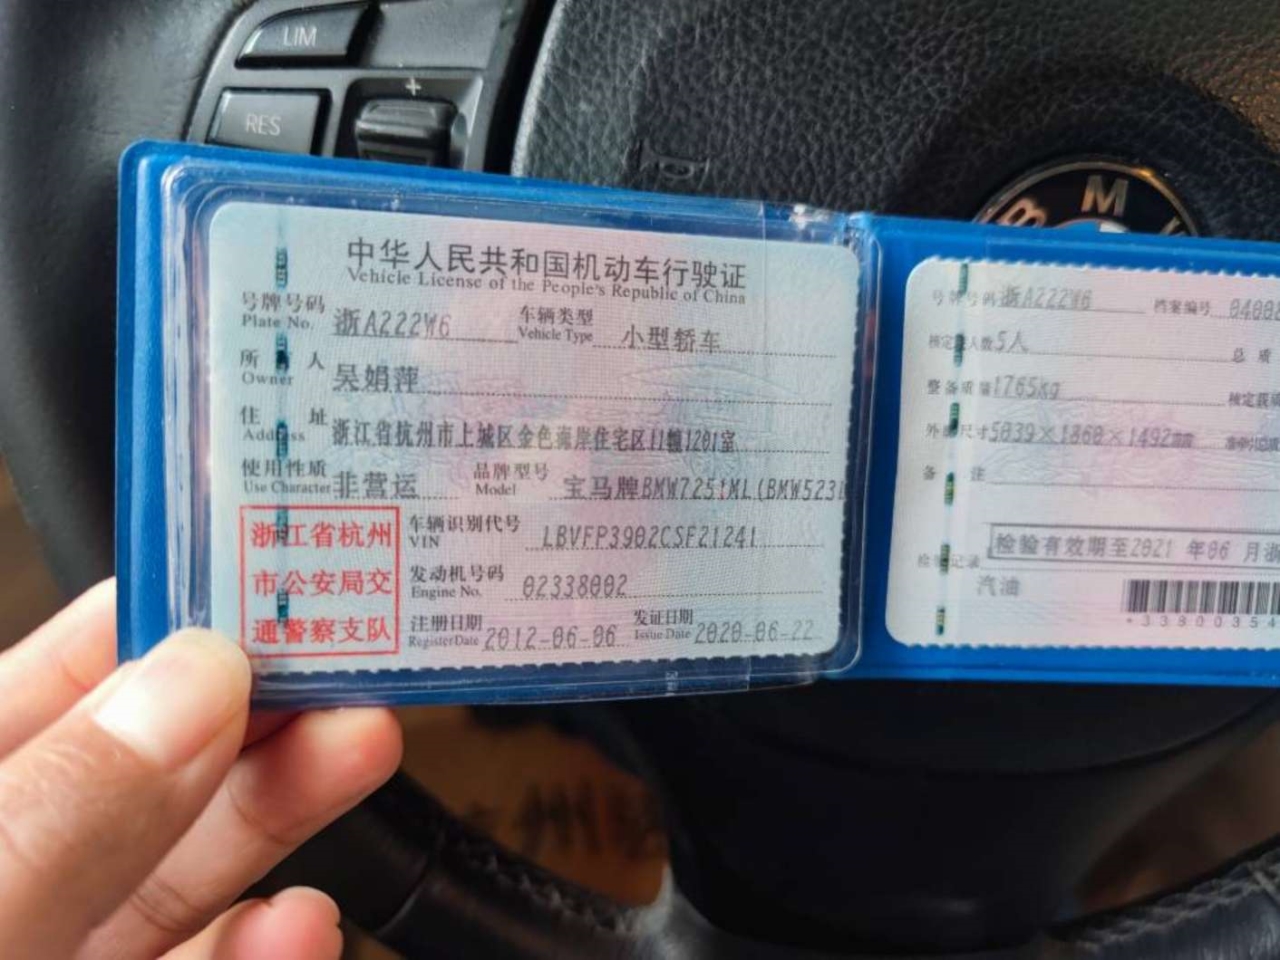 LIM
+
RES
BMW
中华人民共和国机动车行驶证
Vehicle License of the People's Republic of China
号牌号码 浙A222W6 车辆类型 小型轿车
Plate No. Vehicle Type
所 人 吴娟萍
Owner
住 址 浙江省杭州市上城区金色海岸住宅区11幢1201室
Address
使用性质 非营运 品牌型号 宝马牌BMW7251ML(BMW523L
Use Character Model
浙江省杭州
市公安局交
通警察支队
车辆识别代号 LBVFP3902CSF21241
VIN
发动机号码 02338002
Engine No.
注册日期 2012-06-06 发证日期 2020-06-22
Register Date Issue Date
号牌号码 浙A222W6 档案编号
核定载人数 5人 总质
整备质量 1765kg 核定载质
外廓尺寸 5039×1860×1492mm
备 注
检验记录 检验有效期至2021 年06 月浙
汽油
*33800354